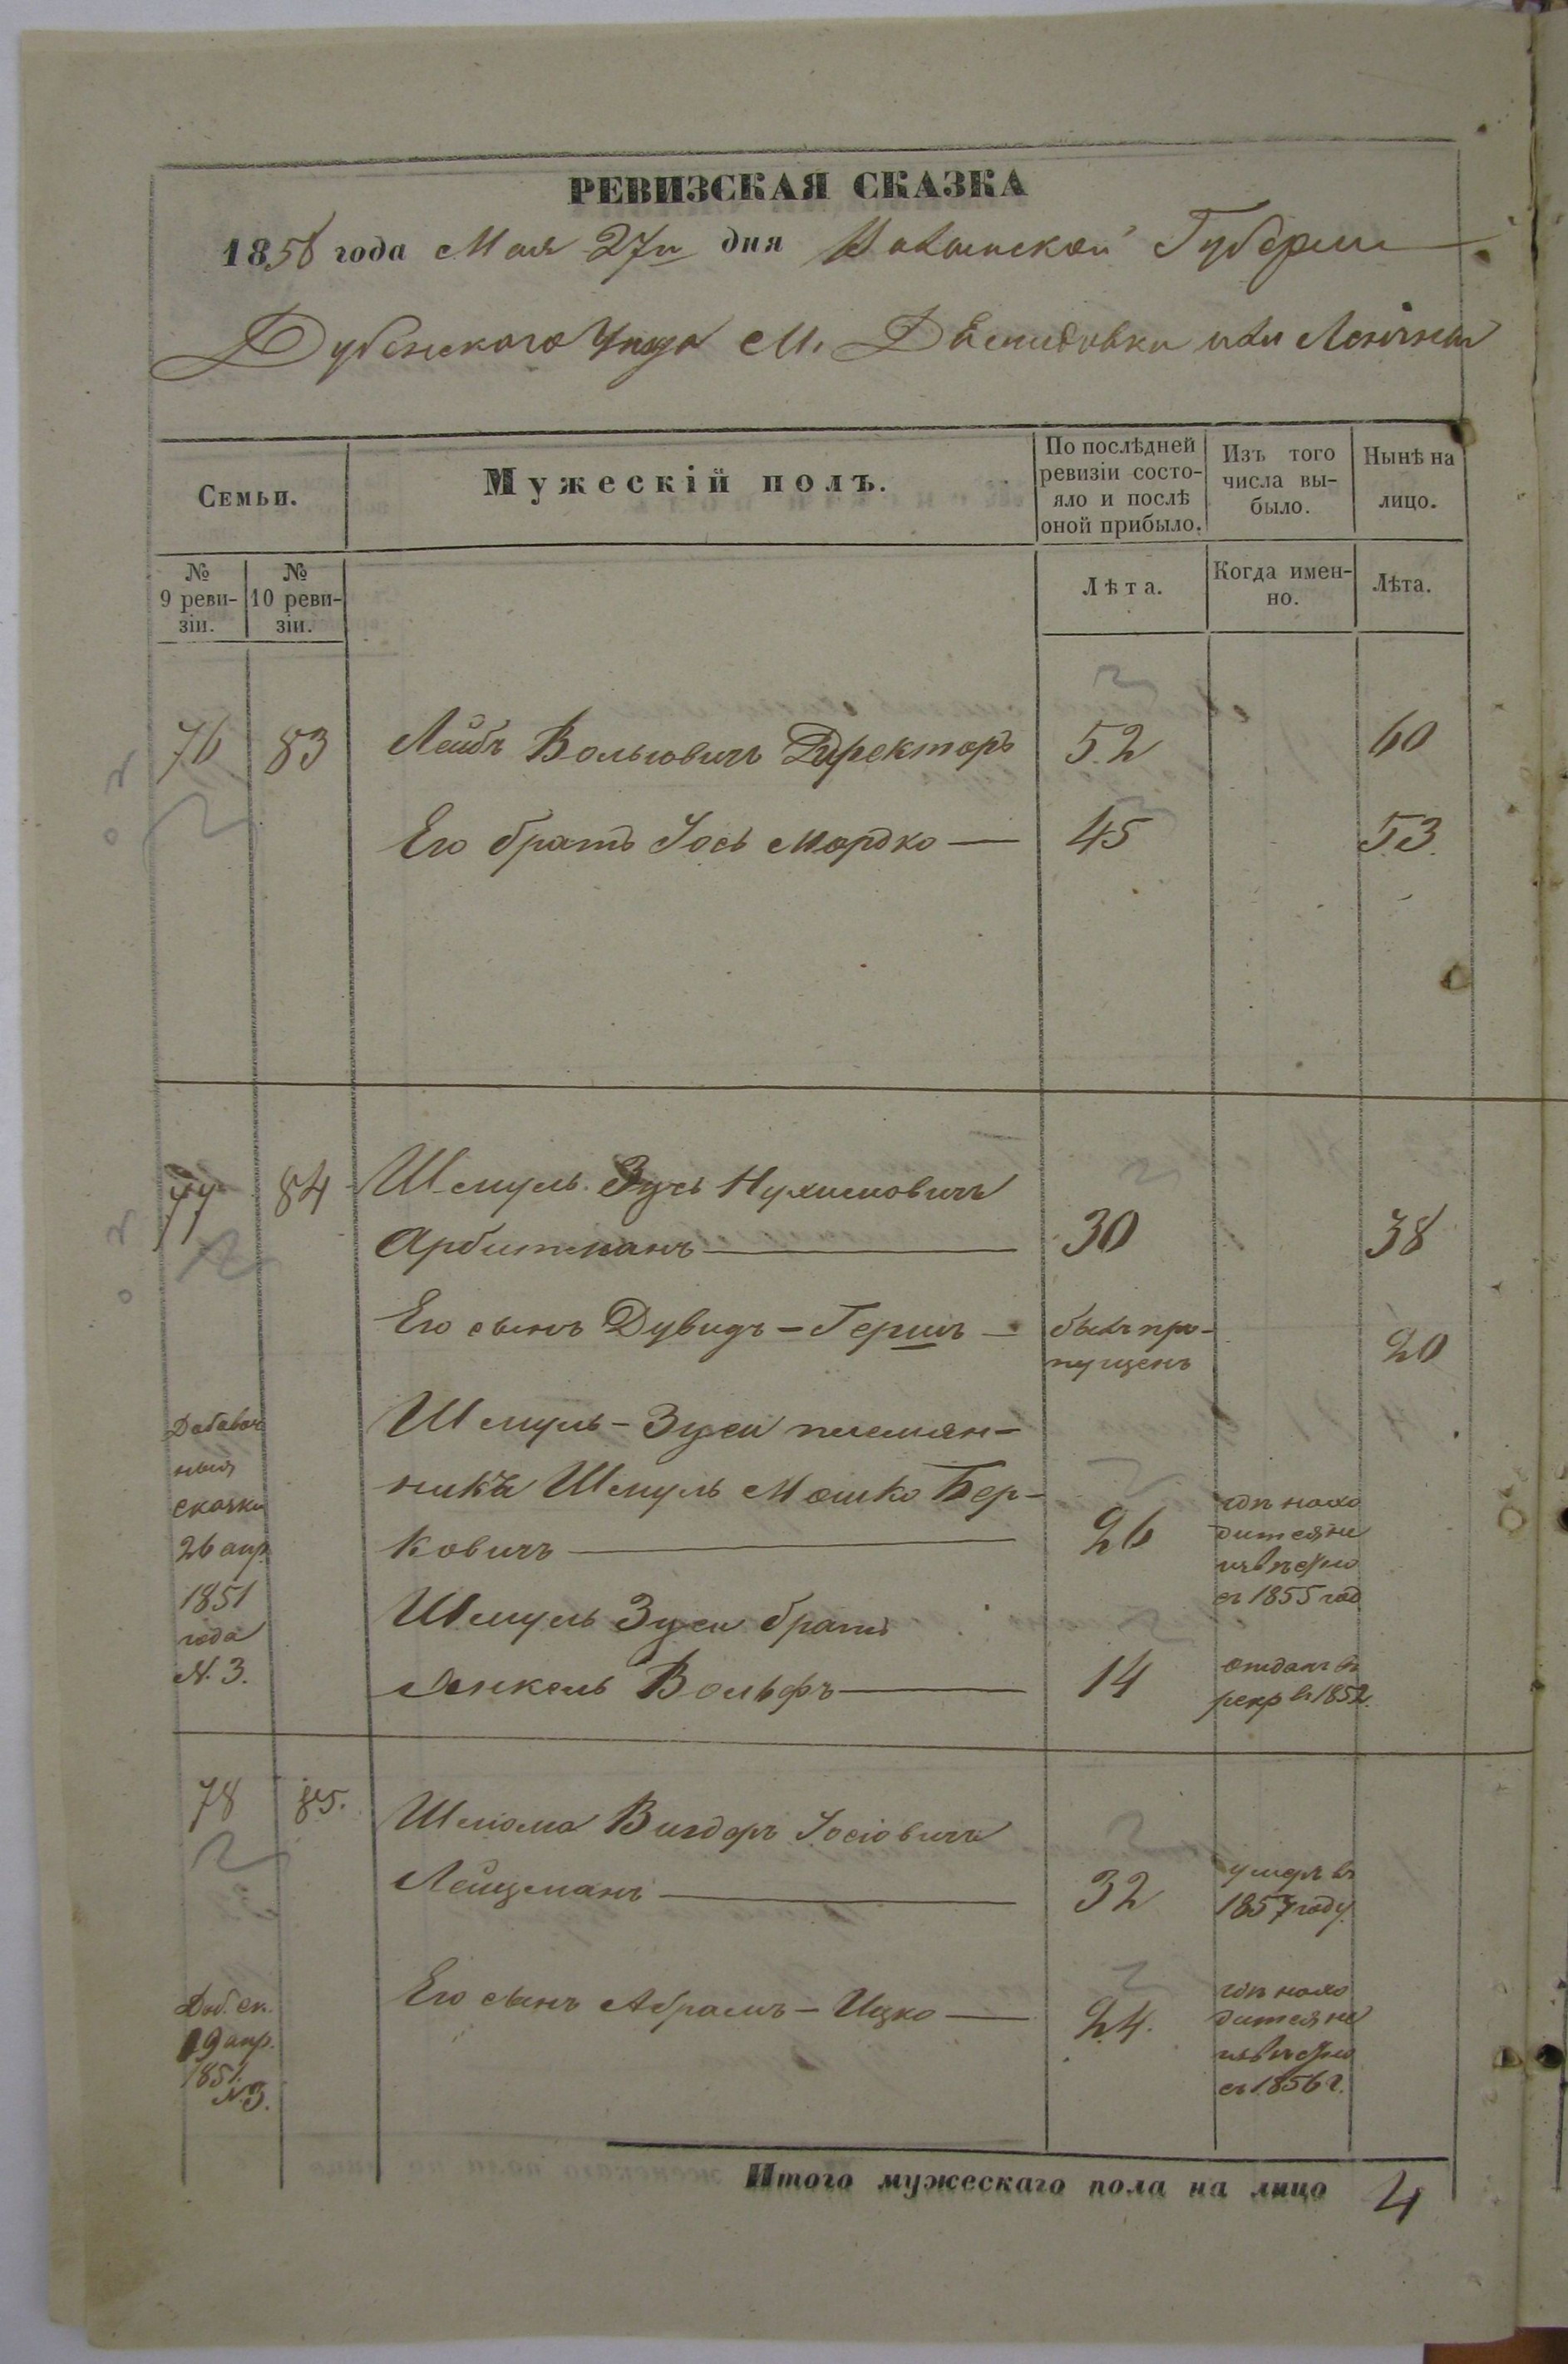 РЕВИЗСКАЯ СКАЗКА
1858 года Мая 27го дня Волынской Губернии
Дубенского Уезда М. Демидовки или Ленгина
Семьи.
Мужескій полъ.
По послѣдней ревизіи состо-
яло и послѣ
оной прибыло.
Изъ того
числа вы-
было.
Нынѣ на
лицо.
№
9 реви-
зіи.
№
10 реви-
зіи.
Лѣта.
Когда имен-
но.
Лѣта.
76 83 Лейбъ Вольковичъ Директоръ 52 60
Его братъ Іось Мордко — 45 53
77 84 Шмуль Зусь Нухимовичъ
Арбитманъ — 30 38
Его сынъ Дувидъ-Гершъ — былъ про-
пущенъ 20
Добавоч
ныя
сказки
26 апр
1851
года
N. 3.
Шмуль-Зуси племян-
никъ Шмуль Мошко Бер-
ковичъ — 26
гдѣ нахо
дится не
извѣстно
съ 1855 год
Шмуль Зуси братъ
Янкель Вольфъ — 14
отданъ въ
рекр въ 1852.
78 85. Шлома Вигдоръ Іосіовичъ
Лейцманъ — 32
умеръ въ
1857 году.
Доб. ск.
19 апр.
1851.
N. 3.
Его сынъ Абрамъ-Ицко — 24.
гдѣ нахо
дится не
извѣстно
съ 1856 г.
Итого мужескаго пола на лицо 4